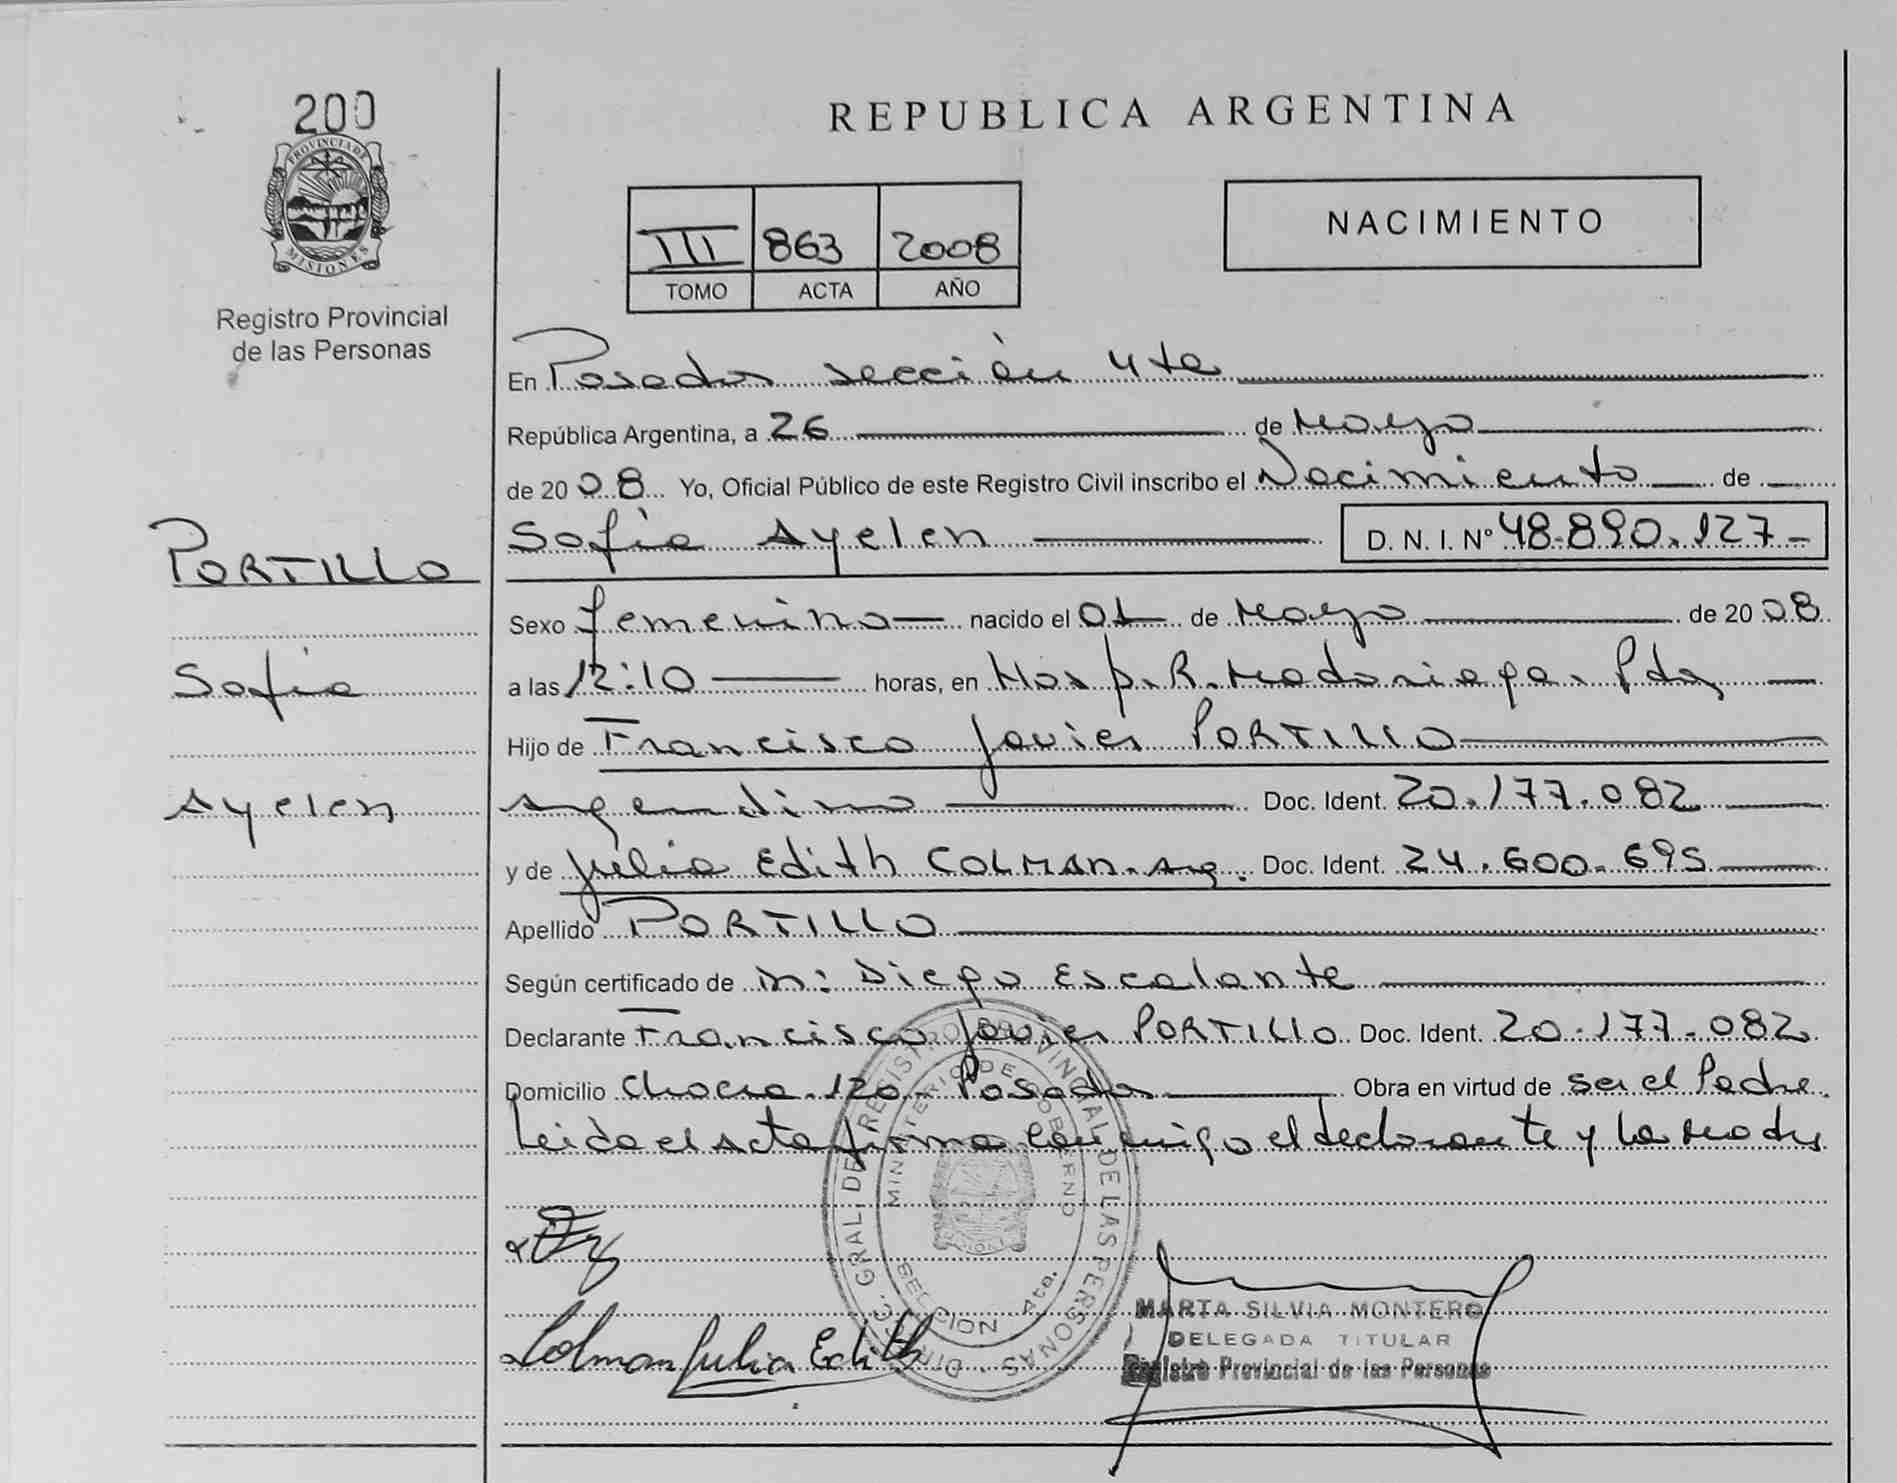 200
PROVINCIA DE
MISIONES
Registro Provincial
de las Personas
REPUBLICA ARGENTINA
III 863 2008
TOMO ACTA AÑO
NACIMIENTO
En Posadas sección 4ta
República Argentina, a 26 de Mayo
de 2008 Yo, Oficial Público de este Registro Civil inscribo el Nacimiento de
Sofia Ayelen D. N. I. Nº 48.890.127-
PORTILLO
Sofia
Ayelen
Sexo femenino nacido el 01 de Mayo de 2008
a las 12:10 horas, en Hosp. R. Madariaga. Pdas
Hijo de Francisco Javier PORTILLO
argentino Doc. Ident. 20.177.082
y de Julia Edith COLMAN. arg. Doc. Ident. 24.600.695
Apellido PORTILLO
Según certificado de m: Diego Escalante
Declarante Francisco Javier PORTILLO Doc. Ident. 20.177.082
Domicilio Chacra 120. Posadas Obra en virtud de ser el Padre
Leida el acta firma conmigo el declarante y la madre
DIRECC. GRAL. DE REGISTRO PROVINCIAL DE LAS PERSONAS
MINISTERIO DE GOBIERNO
SECCION 4ta.
Colman Julia Edith
MARTA SILVIA MONTERO
DELEGADA TITULAR
Registro Provincial de las Personas